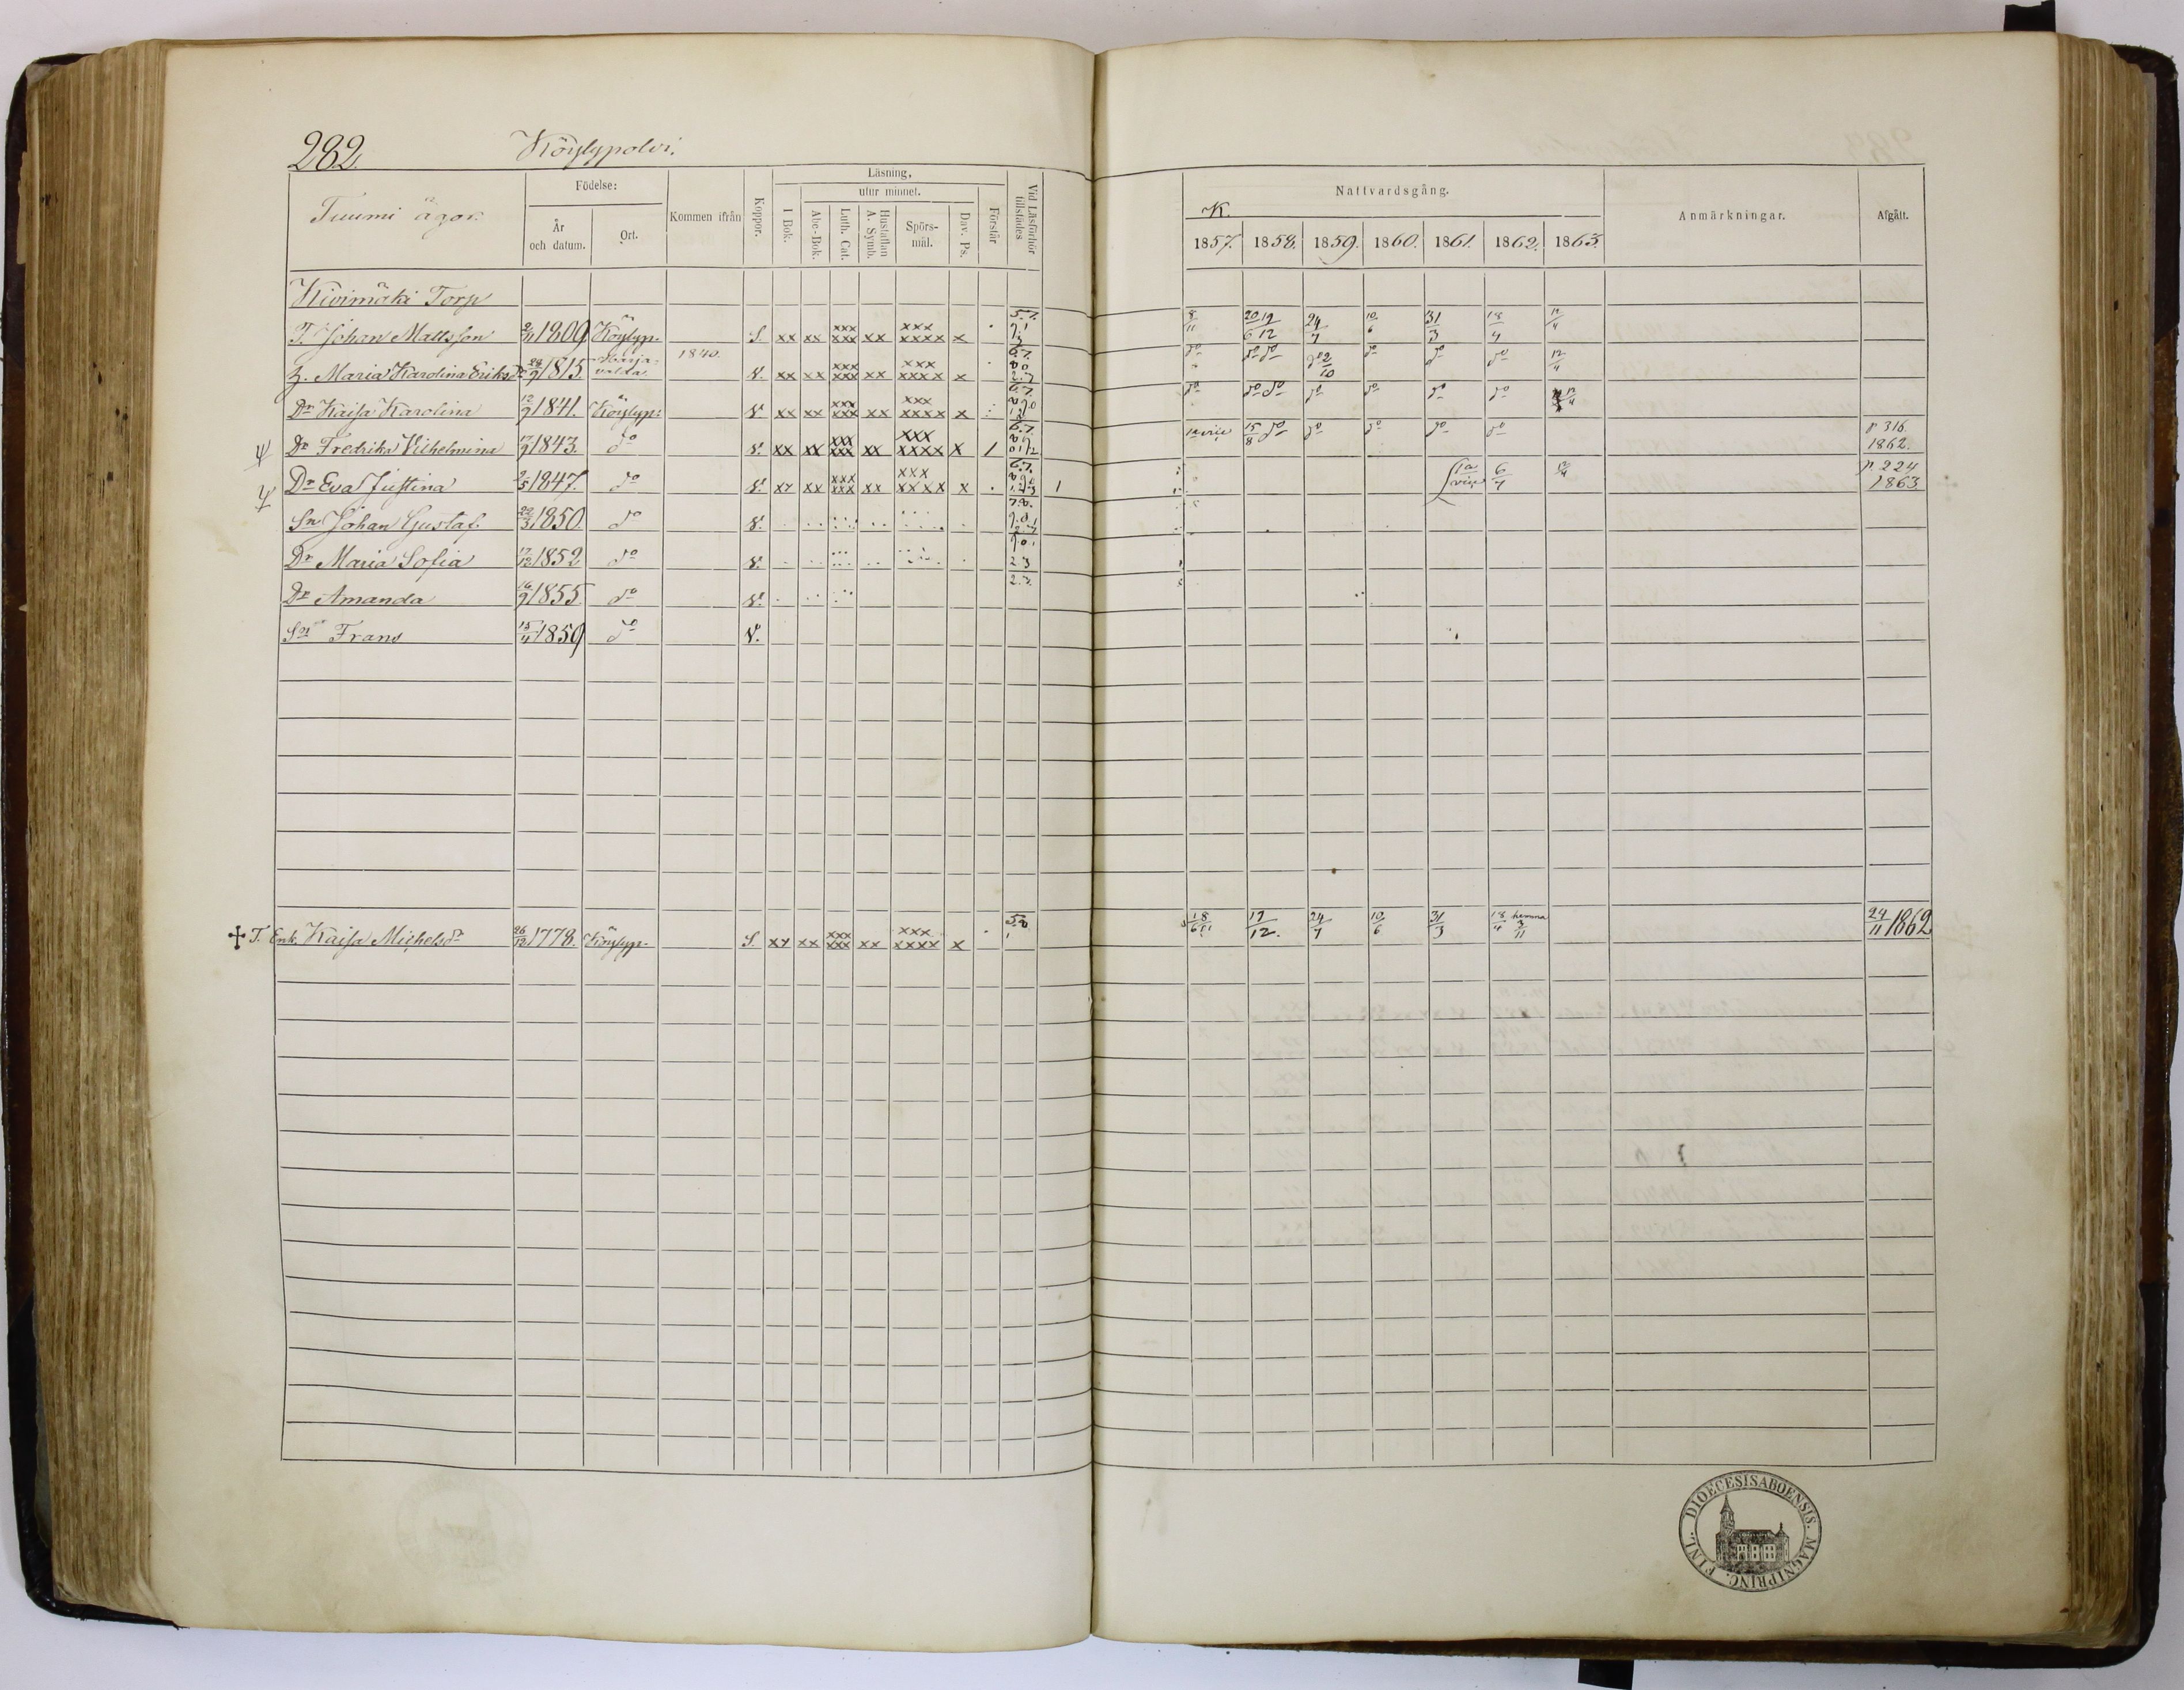 282. Köylypolvi.
Tuumi ägor.
Födelse:
År och datum.
Ort.
Kommen ifrån
Koppor.
Läsning,
utur minnet.
I Bok.
Abc-Bok.
Luth. Cat.
Hustaflan A. Symb.
Spörsmål.
Dav. Ps.
Förstår
Vid Läsförhör tillstädes
Nattvardsgång.
K.
1857. 1858. 1859. 1860. 1861. 1862. 1863.
Anmärkningar.
Afgått.
Kivimäki Torp
T. Johan Mattsson 2/11 1809 Köylyp. S. xx xx xxx xxx xx xxx xxxx x 8/11 20/6 19/12 24/4 10/6 31/3 18/4 12/4
H. Maria Karolina Eriksdr 1815. 1840. v. xx xx xxx xxx xx xxx xxxx x do do do do 2/10 do do do 12/4
Dr Kaisa Karolina 12/9 1841. Köylyp: v. xx xx xxx xxx xx xxx xxxx x do do do do do do do 12/4
Dr Fredrika Vilhelmina 17/9 1843. do v. xx xx xxx xxx xx xxx xxxx x / 15/8 do do do do do p 316. 1862.
Dr Eva Justina 2/5 1847. do v. xx xx xxx xxx xx xxx xxxx x 6/4 12/4 p. 224 1863
Sn Johan Gustaf. 22/3 1850. do v.
Dr Maria Sofia 17/12 1852 do v.
Dr Amanda 16/9 1855. do v.
Sn Frans 15/4 1859 do v.
+ T. Enk. Kaisa Michelsdr 26/12 1778. Köylyp. S. xx xx xxx xxx xx xxx xxxx x 19/12. 24/4 10/6 31/3 18/4 hemma 3/11 24/11 1862
DIOECESIS ABOENSIS. MAGNI PRINC. FINL.